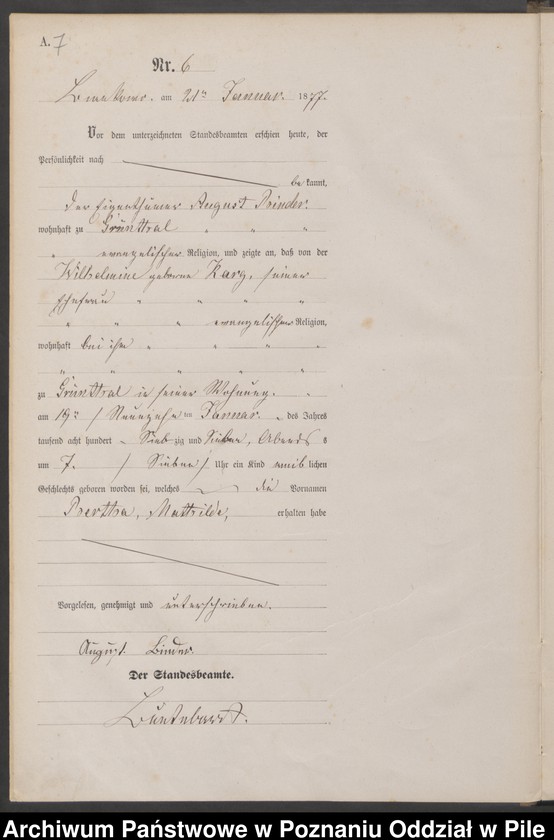 A. 7
Nr. 6
am 21ten Januar 1877.
Vor dem unterzeichneten Standesbeamten erschien heute, der
Persönlichkeit nach
bekannt,
der Eigenthümer August Binder
wohnhaft zu Grünthal
evangelischer Religion, und zeigte an, daß von der
Wilhelmine geborne Karg, seiner
Ehefrau
evangelischer Religion,
wohnhaft bei ihm
zu Grünthal in seiner Wohnung.
am 19ten / Neunzehnten Januar des Jahres
tausend acht hundert Siebzig und Sieben, Abends
um 7. / Sieben / Uhr ein Kind weiblichen
Geschlechts geboren worden sei, welches die Vornamen
Bertha, Mathilde, erhalten habe
Vorgelesen, genehmigt und unterschrieben.
August Binder
Der Standesbeamte.
Archiwum Państwowe w Poznaniu Oddział w Pile